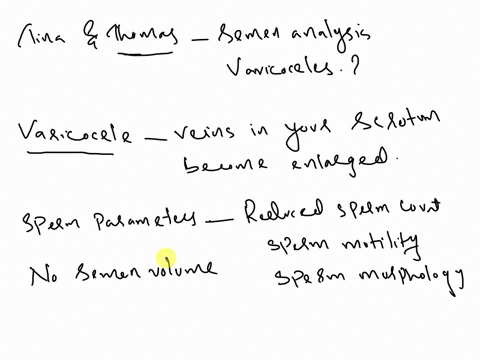 Tina & Thomas – Semen analysis
Varicoceles.?
Varicocele – veins in your scrotum
become enlarged.
Sperm Parameters – Reduced sperm count
sperm motility
No semen volume
sperm morphology